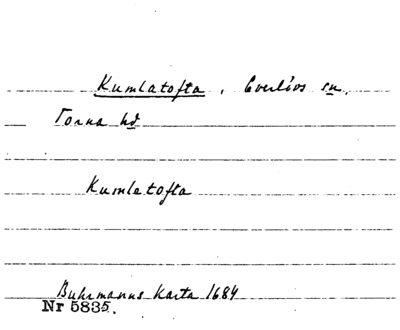 Kumlatofta, Everlövs sn.
Torna hd
Kumletofta
Buhrmanns Karta 1684
Nr 5835.